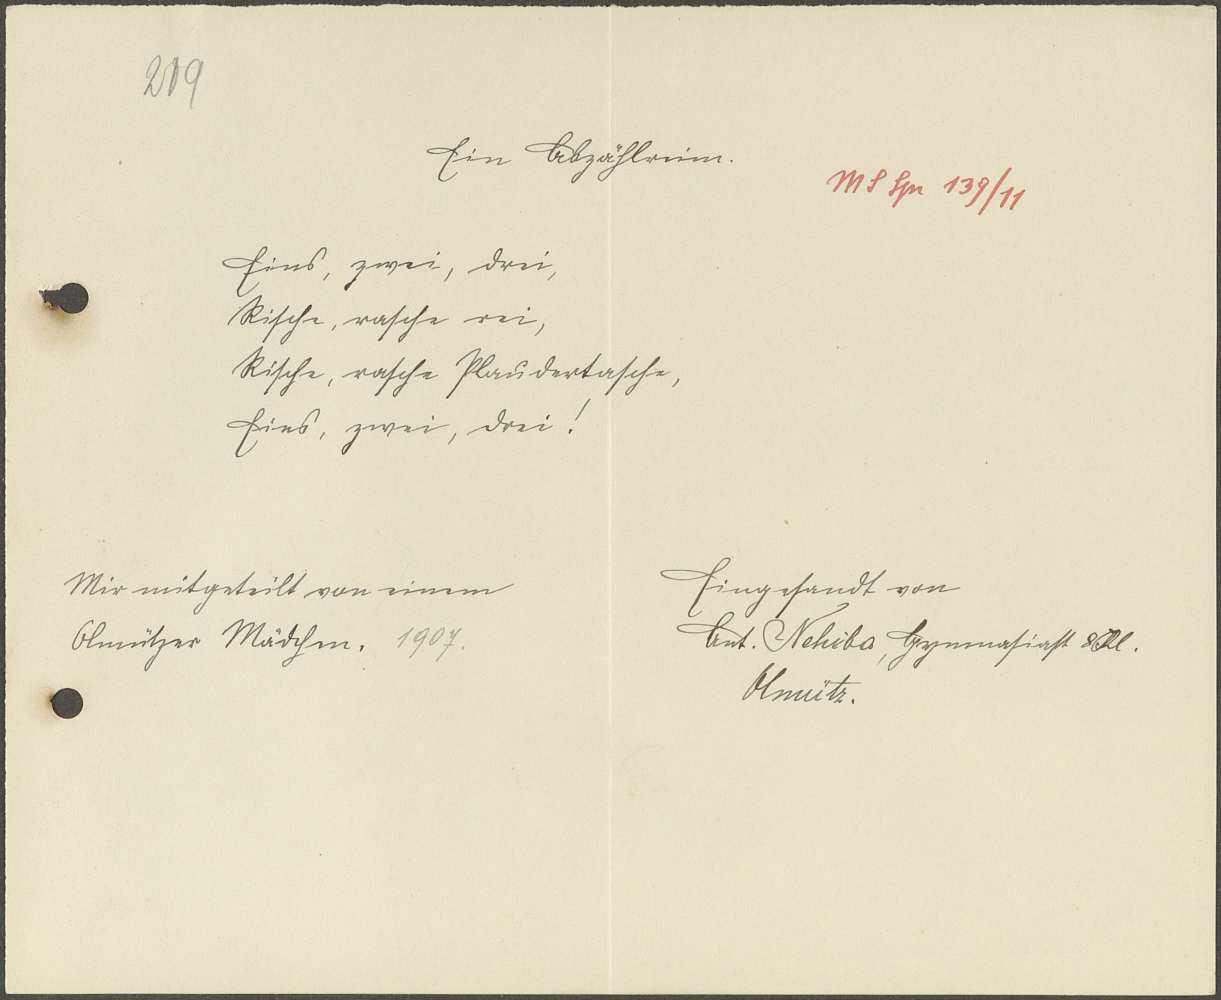 219
Ein Abzählreim.
MS Spr 139/11
Eins, zwei, drei,
Rische, rasche rei,
Rische, rasche Plaudertasche,
Eins, zwei, drei!
Mir mitgeteilt von einem
Olmützer Mädchen. 1907.
Eingesandt von
Ant. Nehiba, Gymnasiast 8 Kl.
Olmütz.